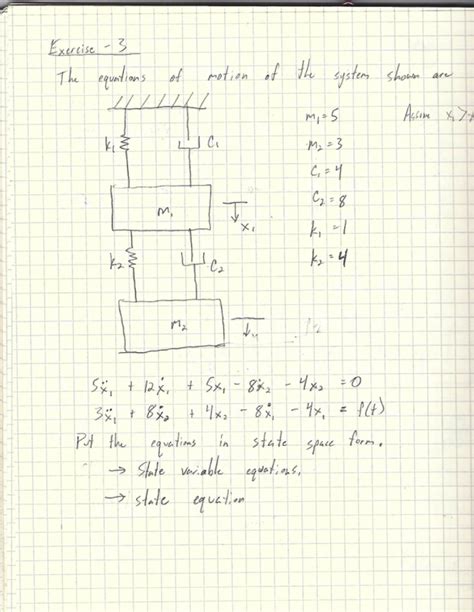 Exercise - 3
The equations of motion of the system shown are
m₁ = 5 Assume x₁ >
m₂ = 3
C₁ = 4
C₂ = 8
k₁ = 1
k₂ = 4
k₁ C₁
m₁
x₁
k₂ C₂
m₂
5ẍ₁ + 12ẋ₁ + 5x₁ - 8ẋ₂ - 4x₂ = 0
3ẍ₁ + 8ẋ₂ + 4x₂ - 8ẋ₁ - 4x₁ = f(t)
Put the equations in state space form.
→ State variable equations.
→ state equation